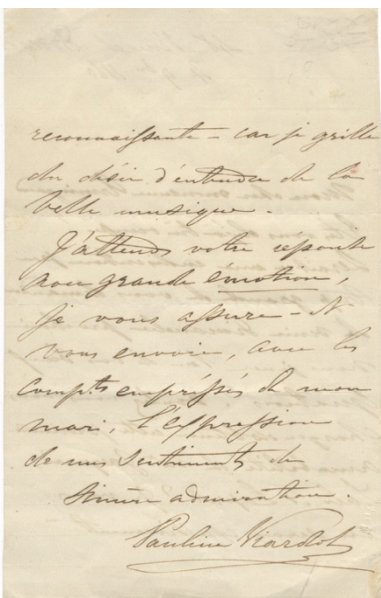 reconnaissante – car je grille
du désir d'entendre de la
belle musique.
J'attends votre réponse
avec grande émotion,
je vous assure – et
vous envoie, avec les
compts empressés de mon
mari, l'expression
de mes sentiments de
sincère admiration.
Pauline Viardot